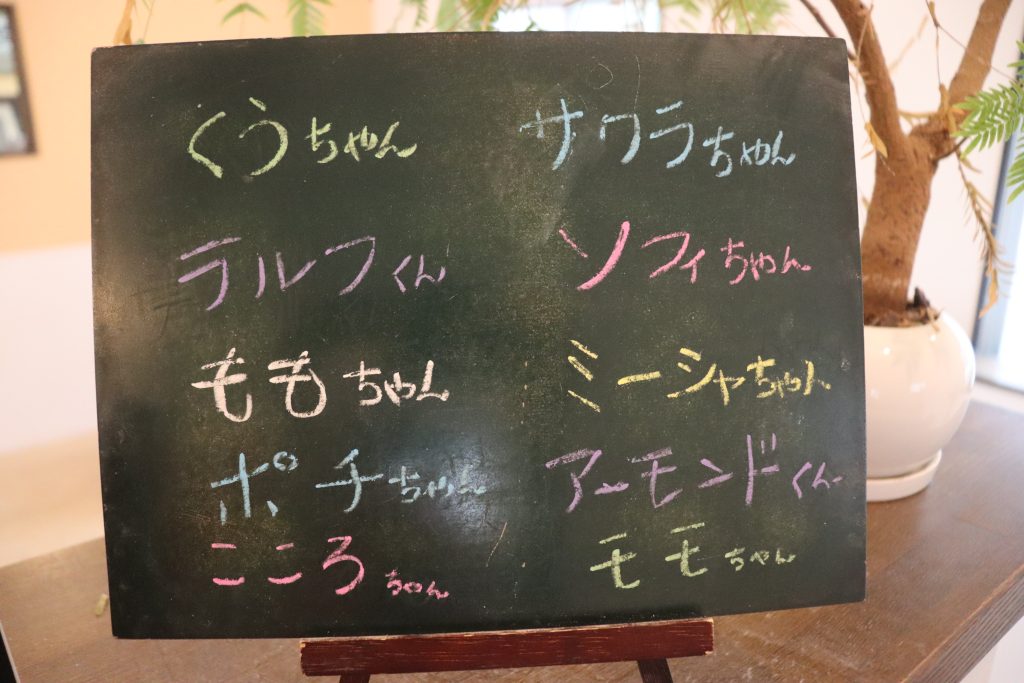 くうちゃん
サクラちゃん
ラルフくん
ソフィちゃん
ももちゃん
ミーシャちゃん
ポチちゃん
アーモンドくん
こころちゃん
モモちゃん